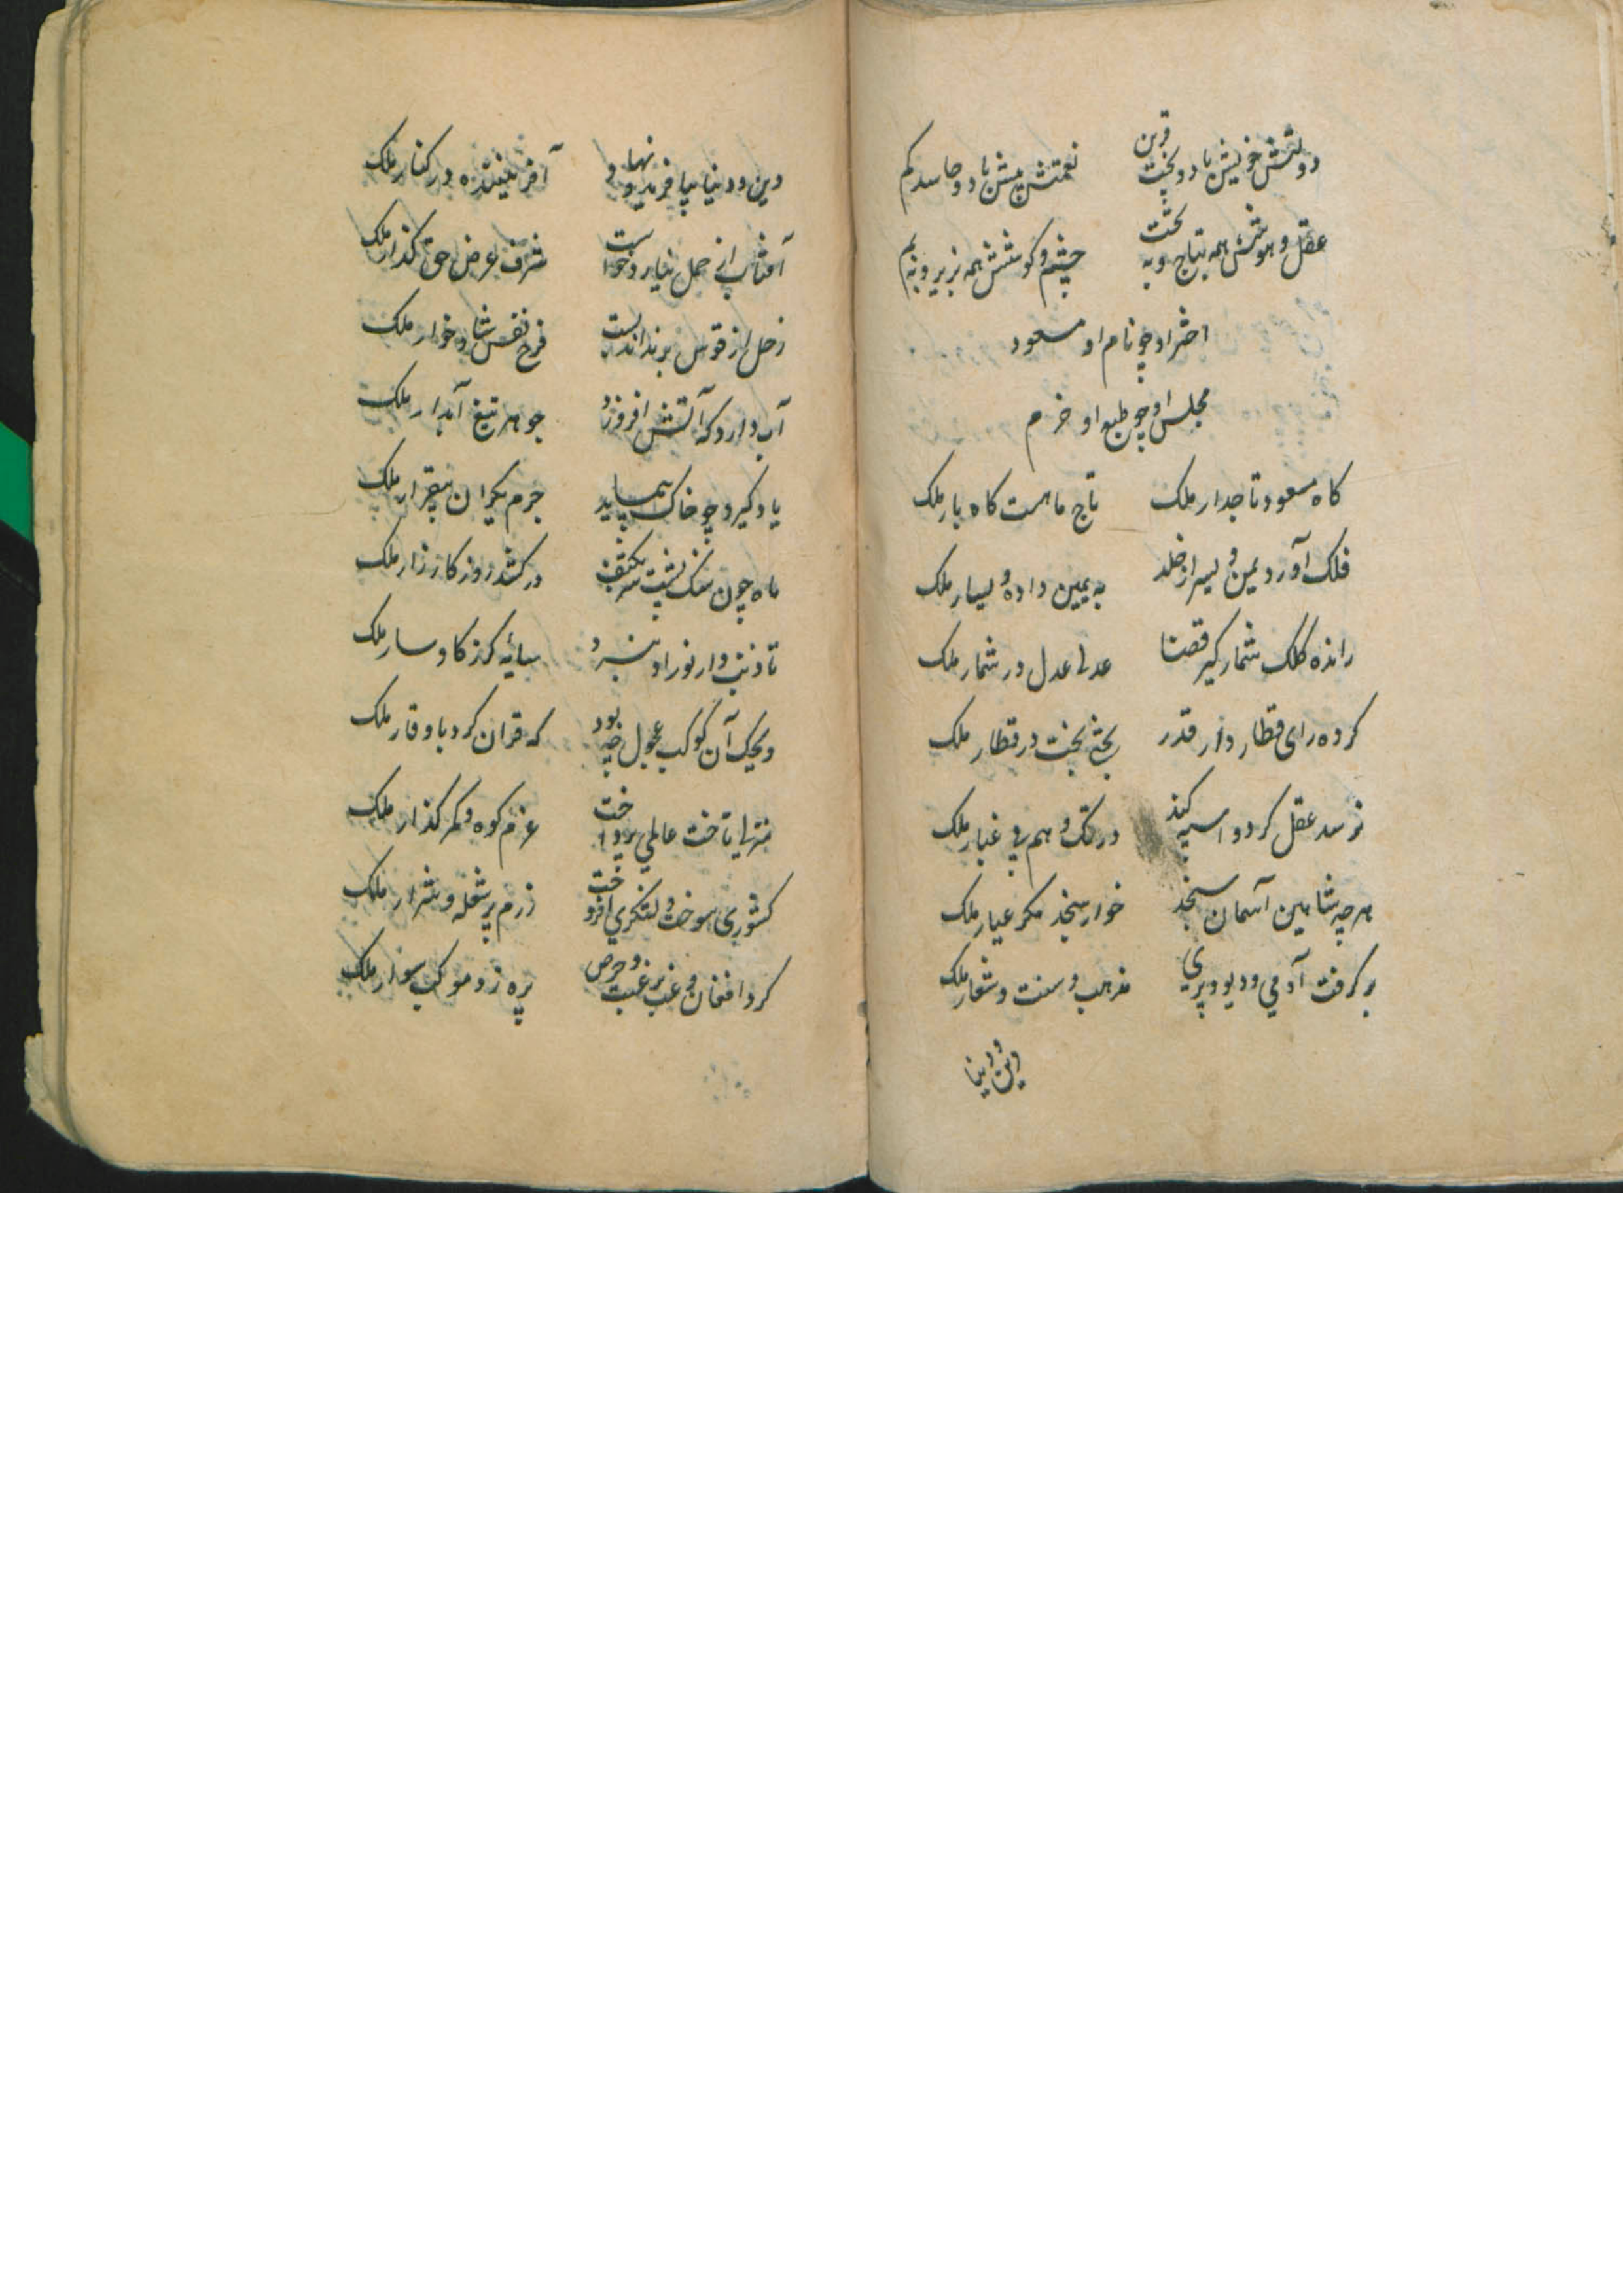 دولتش خویش باد و بخت قرین نعمتش بیش باد و حاسد کم
عقل و هوشش همه بتاج و به تخت چشم و کوشش همه بزیر و به بم
اختر او چو نام او مسعود
مجلس او چو طبع او خرم
کاه مسعود تاجدار ملک تاج ماهست کاه بار ملک
فلک آورد یمین و یسر از خلد به یمین داده و یسار ملک
رانده کلک شمار کیر قضا عدلها عدل در شمار ملک
کرده رای قطار دار قدر بختی بخت در قطار ملک
نرسد عقل کر دو اسپه کند در تک وهم پی غبار ملک
هرچه شاهین آسمان سنجد خوار سنجد مکر عیار ملک
بر کرفت آدمی و دیو و پری مذهب و سنت و شعار ملک
دین و دنیا
دین و دنیا بیافرید و نهاد آفریننده در کنار ملک
آفتاب از حمل نیارد خواست شرف عرض حق کذار ملک
زحل از قوس برنداند بست فرح نفس شاد خوار ملک
آب دارد که آتش افروزد جوهر تیغ آبدار ملک
باد کیرد چو خاک پیماید جرم یکران بیقرار ملک
ماه چون سنک پشت سر بکتف در کشد روز کارزار ملک
تا ذنب وار نور او نبرد سایه کرز کاوسار ملک
ویحک آن کوکب عجول چه بود که قران کرد با وقار ملک
منزلی تاخت عالمی پرداخت عزم کوه و کمر کذار ملک
کشوری سوخت و لشکری افروخت رزم پر شعله و شرار ملک
کرد افغان و غیب رغبت و حرص پره زد موکب سوار ملک